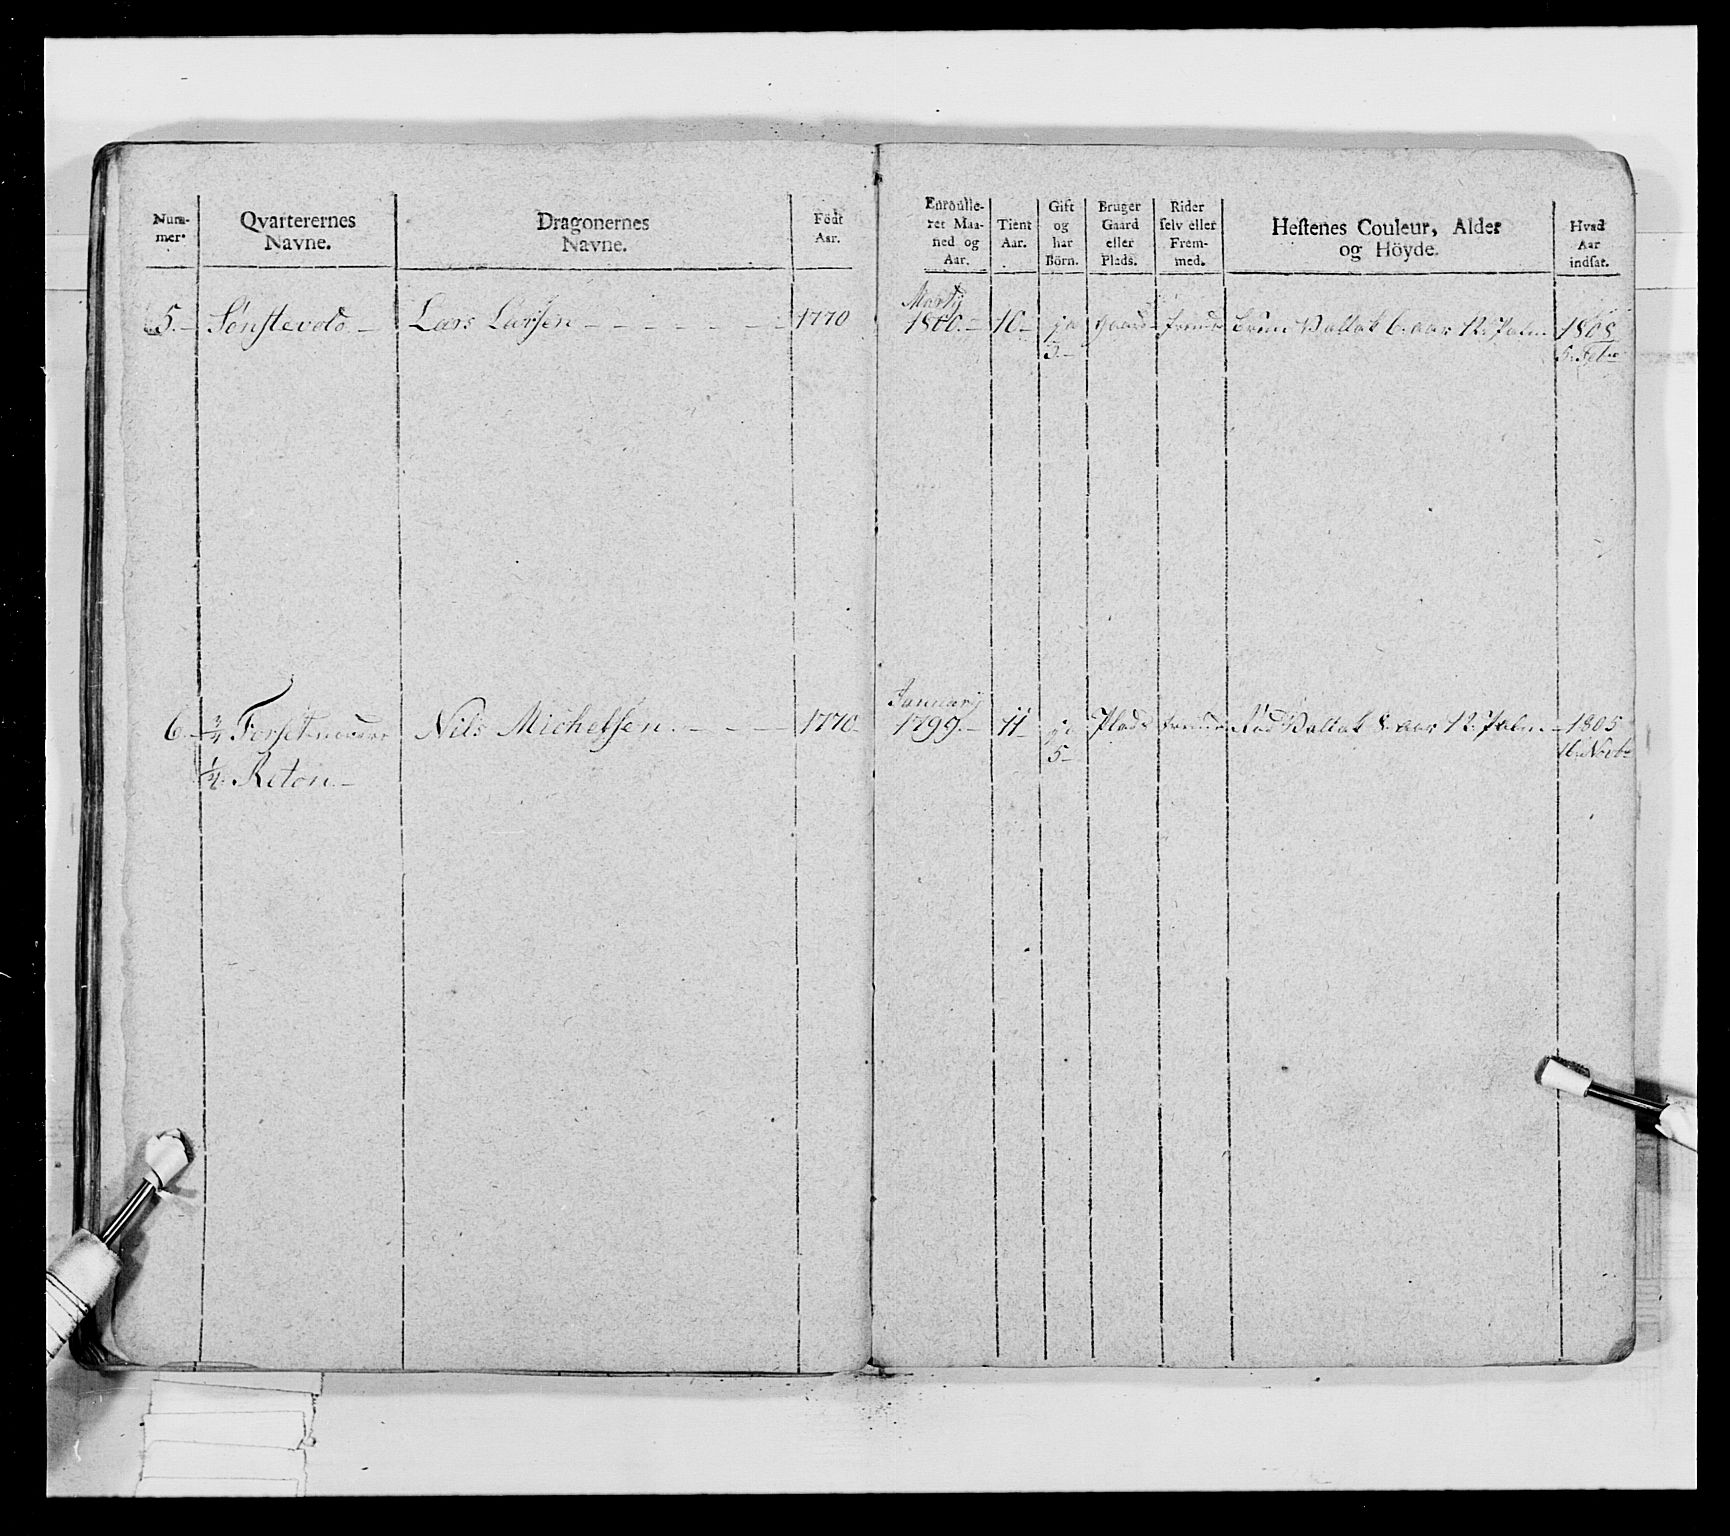 Num-
mer.
Qvarterernes
Navne.
Dragonernes
Navne.
Födt
Aar.
Enroulle-
ret Maa-
ned og
Aar.
Tient
Aar.
Gift
og
har
Börn.
Bruger
Gaard
eller
Plads.
Rider
selv eller
Frem-
med.
Hestenes Couleur, Alder
og Höyde.
Hvad
Aar
indsat.
5.- Sönstevold - Lars Larsen - - - - - - 1770
Martÿ
1800.- 10- ja Gaard- fremd Brun Vallak 6. aar 12. Palm - 1808
3.- 5. Febr
6.- 3/4 Forset Nils Michelsen. - - - - 1770
Januarÿ
1799.- 11- ja Plads fremd Röd Vallak 8. aar 12. Palm - 1805
5- 16. Novbr
1/4. Reton.-